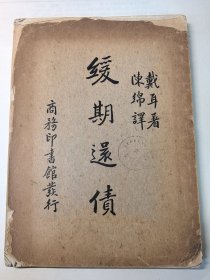 戴耳著
陳綿譯
緩期還債
商務印書館發行